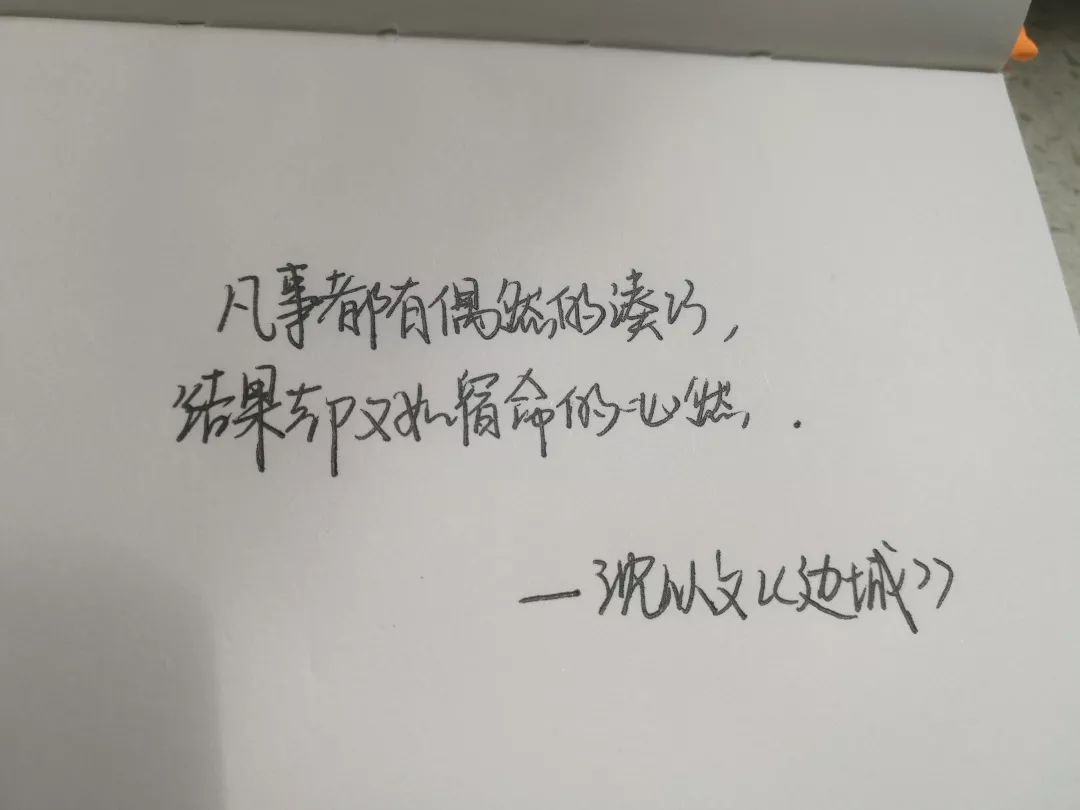 凡事都有偶然的凑巧,
结果却又如宿命的必然.
—沈从文《边城》